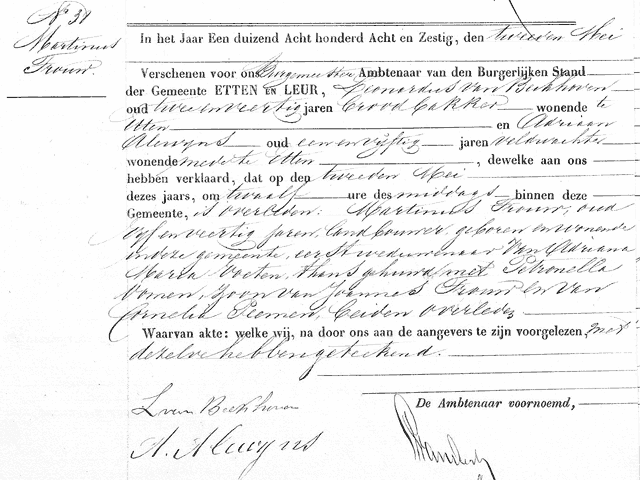 No 31
Martinus
Trouw.
In het Jaar Een duizend Acht honderd Acht en Zestig, den tweeden Mei
Verschenen voor ons Burgemeester Ambtenaar van den Burgerlijken Stand
der Gemeente ETTEN EN LEUR, Leonardus van Beekhoven
oud twee en veertig jaren Brood bakker wonende te
Etten en Adriaan
Alewyns oud een en vijftig jaren veldwachter
wonende mede te Etten, dewelke aan ons
hebben verklaard, dat op den tweeden Mei
dezes jaars, om twaalf ure des middags binnen deze
Gemeente, is overleden. Martinus Trouw, oud
vyf en veertig jaren, landbouwer, geboren en wonende
in deze gemeente, eerst weduwenaar van Adriana
Maria Voeten, thans gehuwd met Petronella
Zoon van Joannes Trouw en van
Cornelia beiden overleden
Waarvan akte: welke wij, na door ons aan de aangevers te zijn voorgelezen, met
dezelve hebben geteekend.
L van Beekhoven
De Ambtenaar voornoemd,
A. Alewyns